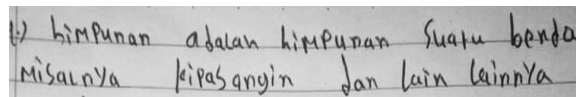 1.) himpunan adalah himpunan suatu benda
Misalnya kipas angin dan lain lainnya